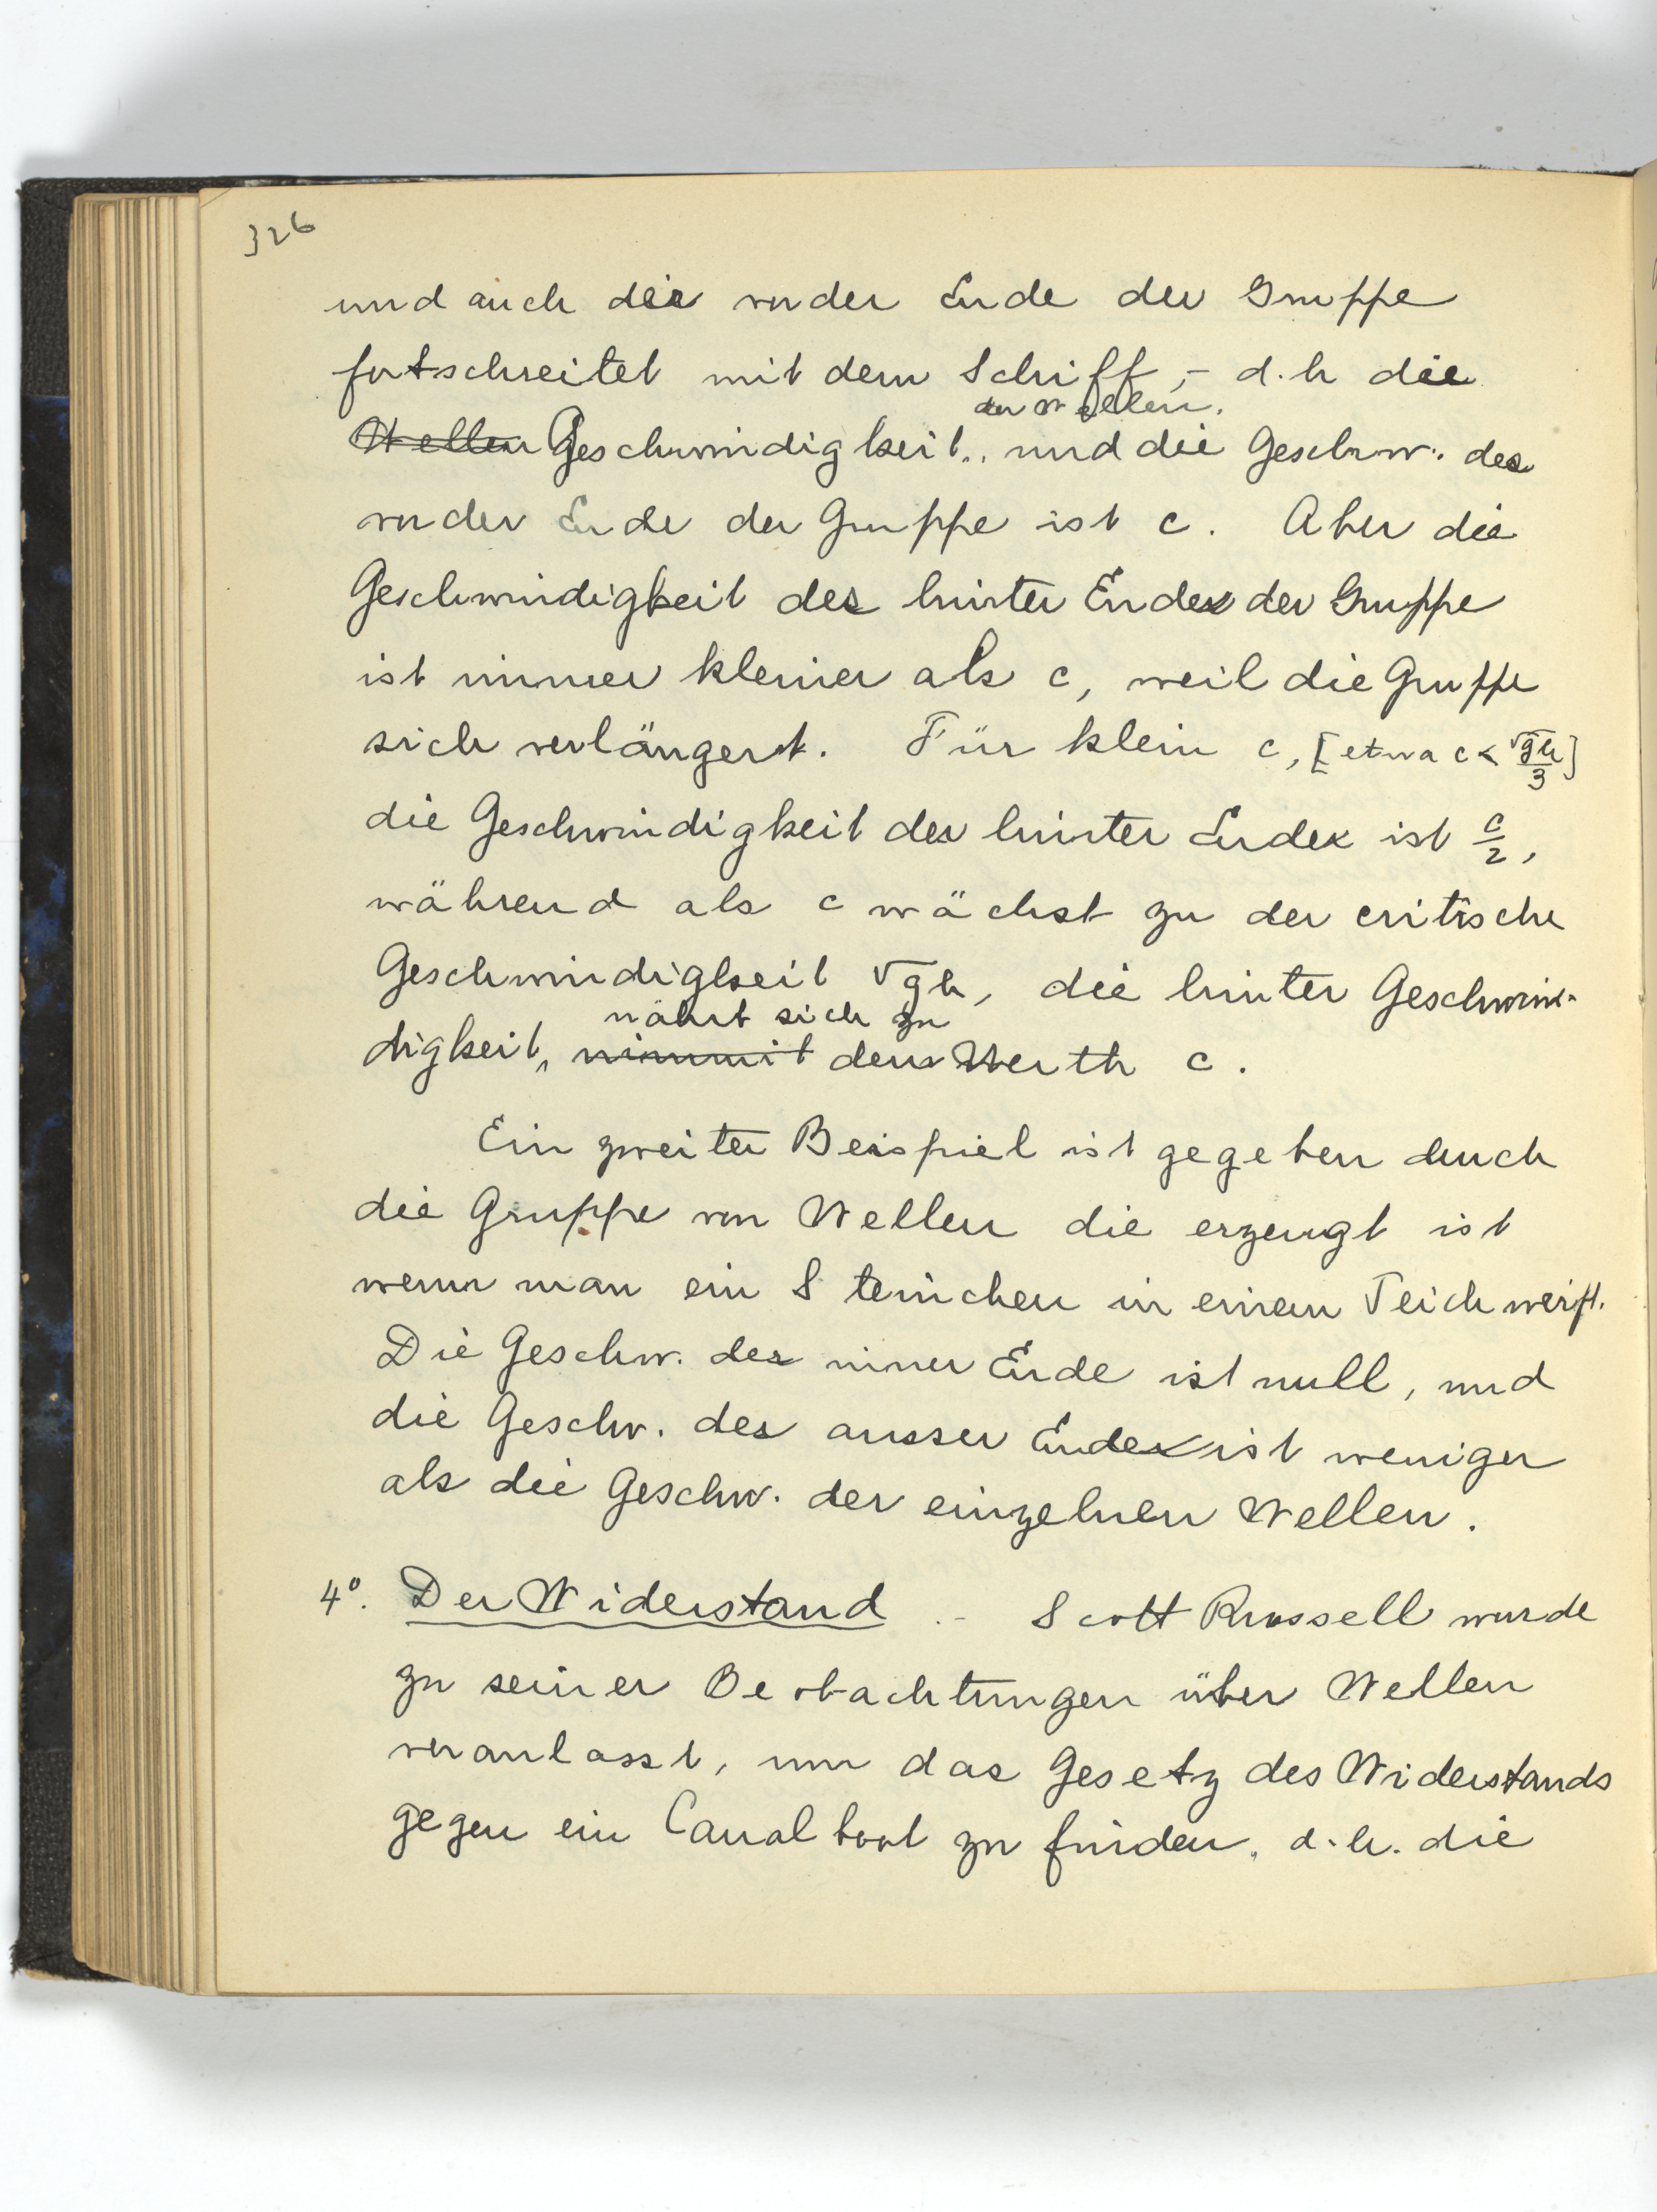 326
und auch die vorder Ende der Gruppe
fortschreitet mit dem Schiff, - d.h die
der Wellen.
Wellen Geschwindigkeit.. und die Geschw. des
vorder Ende der Gruppe ist c. Aber die
Geschwindigkeit des hinter Endes der Gruppe
ist immer kleiner als c, weil die Gruppe
sich verlängert. Für klein c, [etwa c < √gh/3]
die Geschwindigkeit des hinter Endes ist c/2,
während als c wächst zu der critische
Geschwindigkeit √gh, die hinter Geschwin-
nährt sich zu
digkeit, nimmit dem Werth c.
Ein zweiter Beispiel ist gegeben durch
die Gruppe von Wellen die erzeugt ist
wenn man ein Steinchen in einem Teich werft.
Die Geschw. des inner Ende ist null, und
die Geschw. des ausser Endes ist weniger
als die Geschw. der einzelnen Wellen.
4°. Der Widerstand .- Scott Russell wurde
zu seiner Beobachtungen über Wellen
veranlasst, um das Gesetz des Widerstands
gegen ein Canalboot zu finden, d.h. die